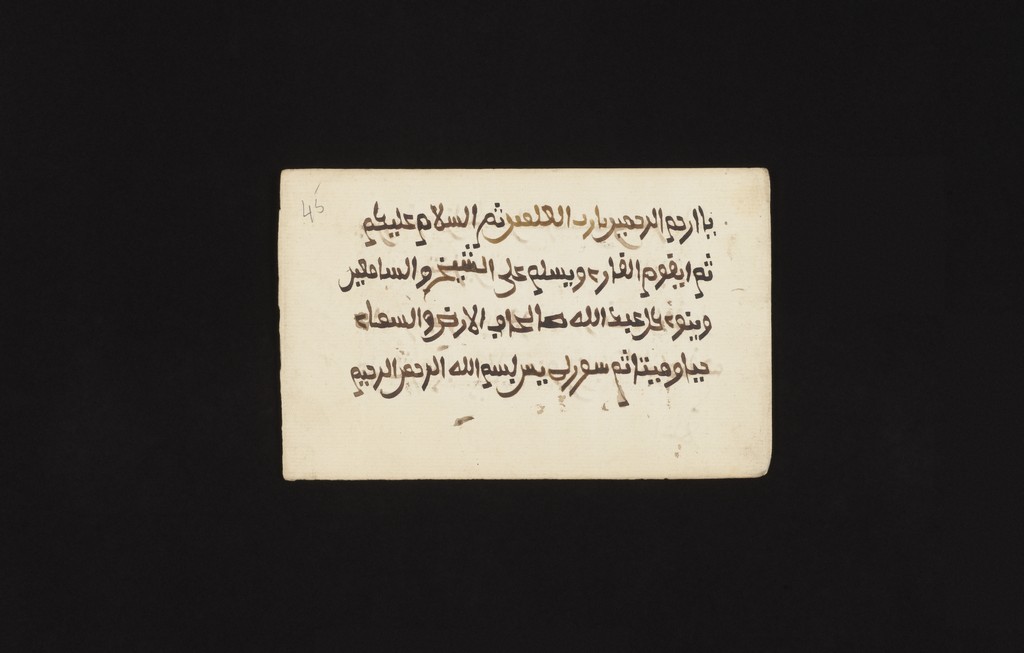 45
يا ارحم الرحمين يا رب العلمين ثم السلام عليكم
ثم ايقوم القارء ويسلم على الشيخ والسامعين
وينوء كل عبد الله صالح في الارض والسماء
حيا وميتا ثم سورة يس بسم الله الرحمن الرحيم